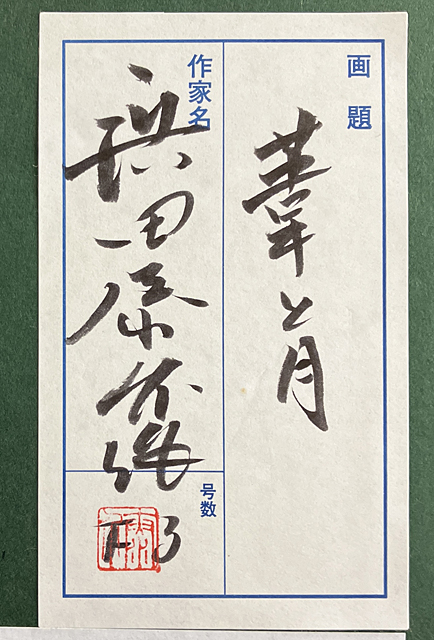 画題
葦と月
作家名
浜田泰介
号数
F3